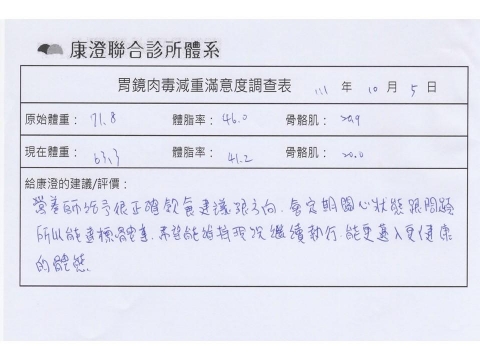 康澄聯合診所體系
胃鏡肉毒減重滿意度調查表 111 年 10 月 5 日
原始體重： 71.8 體脂率： 46.0 骨骼肌： 20.9
現在體重： 63.3 體脂率： 41.2 骨骼肌： 20.0
給康澄的建議/評價：
營養師給予很正確飲食建議跟方向. 會定期關心狀態跟問題
所以能達標體重. 希望能維持現況繼續執行. 能更邁入更健康
的體態.